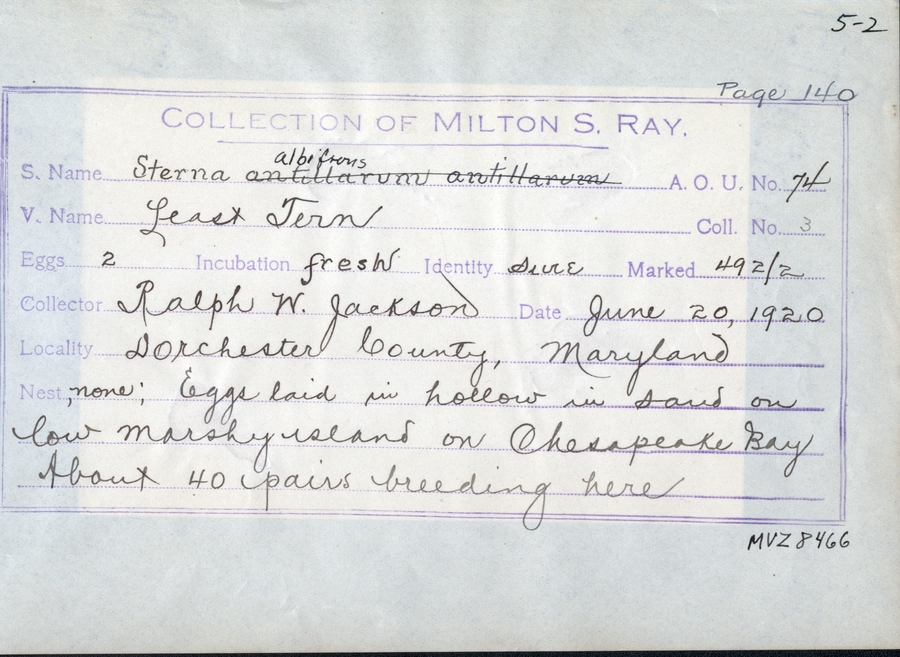 5-2
Page 140
COLLECTION OF MILTON S. RAY.
albifrons
S. Name Sterna antillarum antillarum A. O. U. No. 74
V. Name Least Tern Coll. No. 3
Eggs 2 Incubation fresh Identity sure Marked 492/2
Collector Ralph W. Jackson Date June 20, 1920
Locality Dorchester County, Maryland
Nest, none; Eggs laid in hollow in sand on
low marshy island on Chesapeake Bay
About 40 pairs breeding here
MVZ 8466